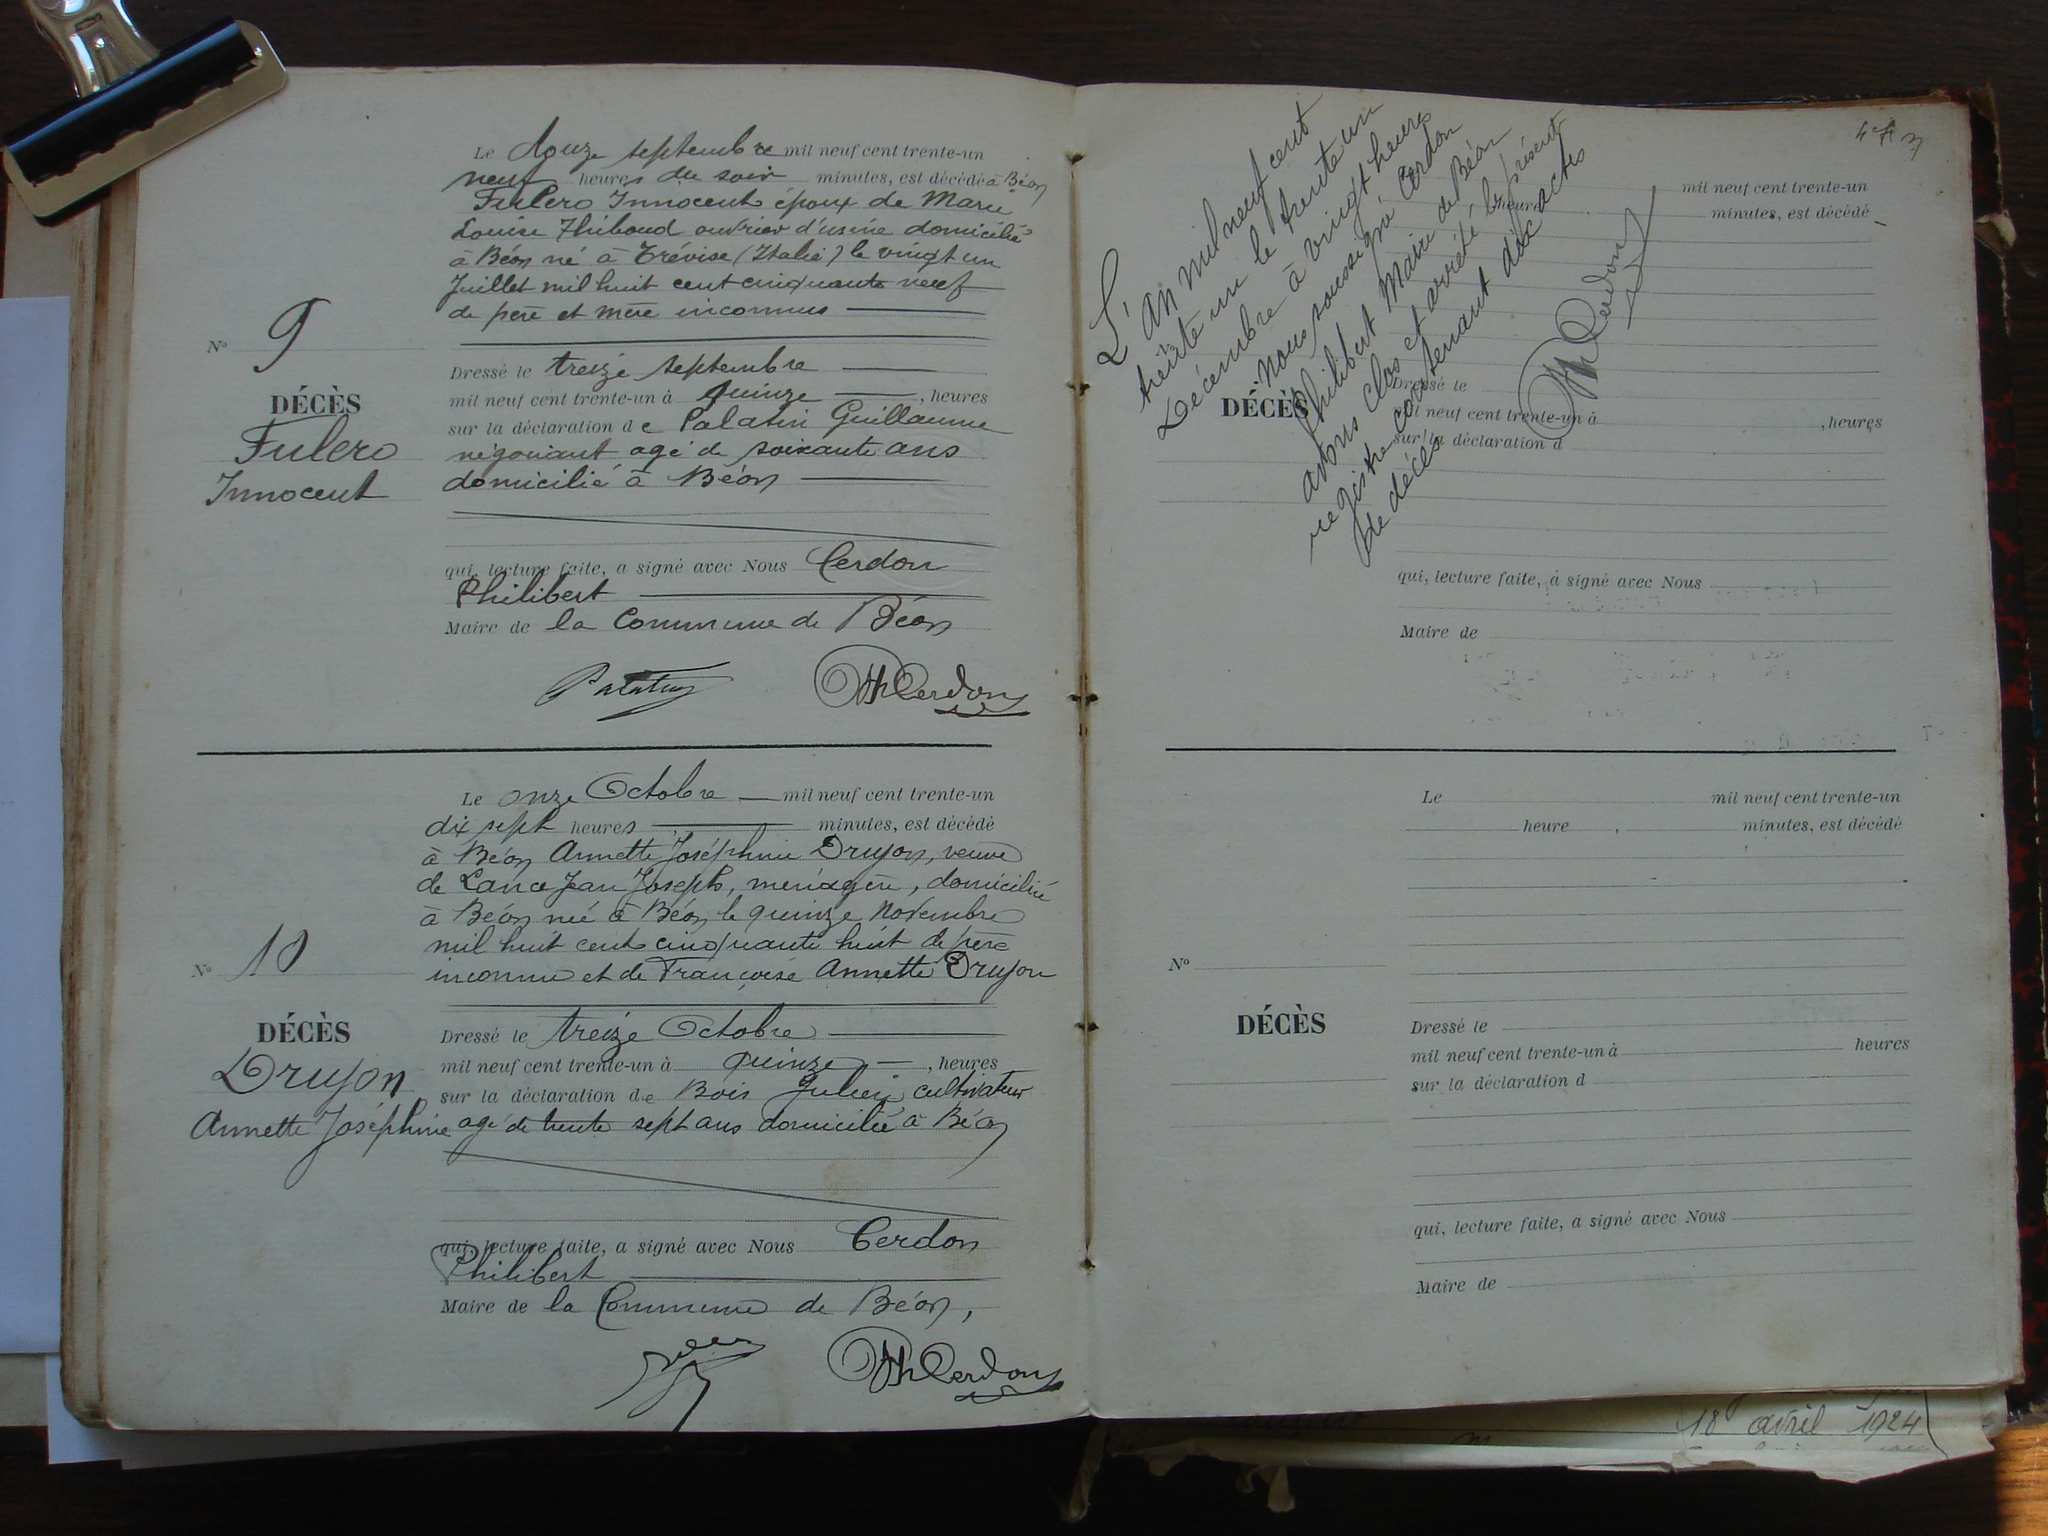 Le douze septembre mil neuf cent trente-un
neuf heures du soir minutes, est décédé à Béon
Fulero Innocent époux de Marie
Louise Thiboud ouvrier d'usine domicilié
à Béon né à Trévise (Italie) le vingt un
Juillet mil huit cent cinquante neuf
de père et mère inconnus
N° 9
DÉCÈS
Fulero
Innocent
Dressé le treize septembre
mil neuf cent trente-un à quinze, heures
sur la déclaration de Palatin Guillaume
négociant agé de soixante ans
domicilié à Béon
qui, lecture faite, a signé avec Nous Cerdon
Philibert
Maire de la Commune de Béon
Palatin PhCerdon
Le onze Octobre mil neuf cent trente-un
dix sept heures minutes, est décédé
à Béon Annette Joséphine Drujon, veuve
de Lance Jean Joseph, ménagère, domiciliée
à Béon née à Béon le quinze Novembre
mil huit cent cinquante huit de père
inconnu et de Françoise Annette Drujon
N° 10
DÉCÈS
Drujon
Annette Joséphine
Dressé le treize Octobre
mil neuf cent trente-un à quinze, heures
sur la déclaration de Bois Julien cultivateur
agé de trente sept ans domicilié à Béon
qui, lecture faite, a signé avec Nous Cerdon
Philibert
Maire de la Commune de Béon,
PhCerdon
L'an mil neuf cent
trente un le trente un
Décembre à vingt heures
nous soussigné Cerdon
Philibert Maire de Béon
avons clos et arrêté le présent
registre contenant dix actes
de décès
PhCerdon
mil neuf cent trente-un
heure minutes, est décédé
DÉCÈS
Dressé le
mil neuf cent trente-un à , heures
sur la déclaration d
qui, lecture faite, à signé avec Nous
Maire de
Le mil neuf cent trente-un
heure minutes, est décédé
N°
DÉCÈS
Dressé le
mil neuf cent trente-un à heures
sur la déclaration d
qui, lecture faite, a signé avec Nous
Maire de
18 avril 1924